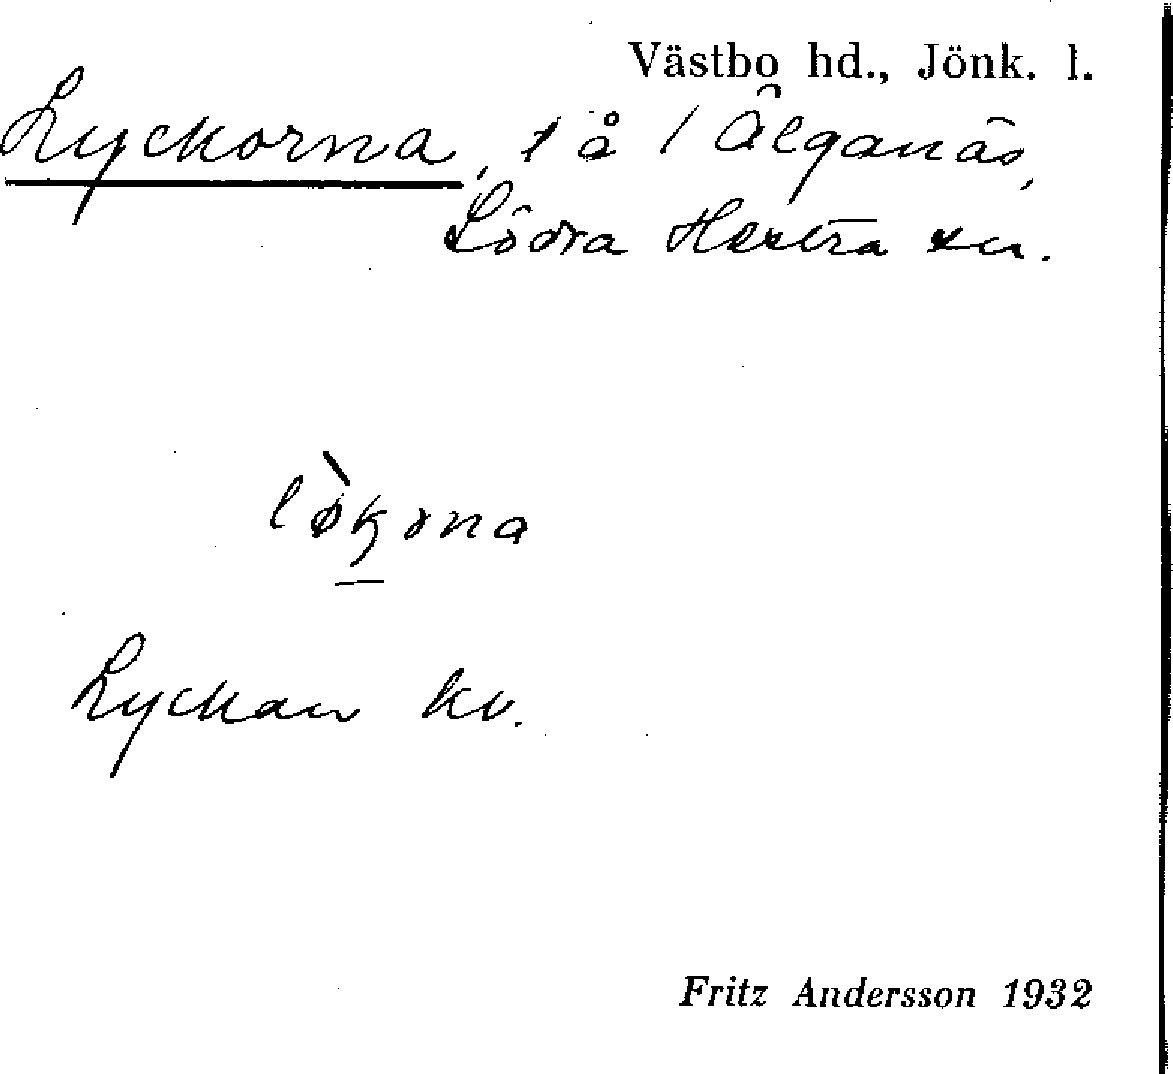 Västbo hd., Jönk. l.
Lyckorna, t å / Älganäs,
Södra Hestra sn.
lø̀kɷna
Lyckan kv.
Fritz Andersson 1932